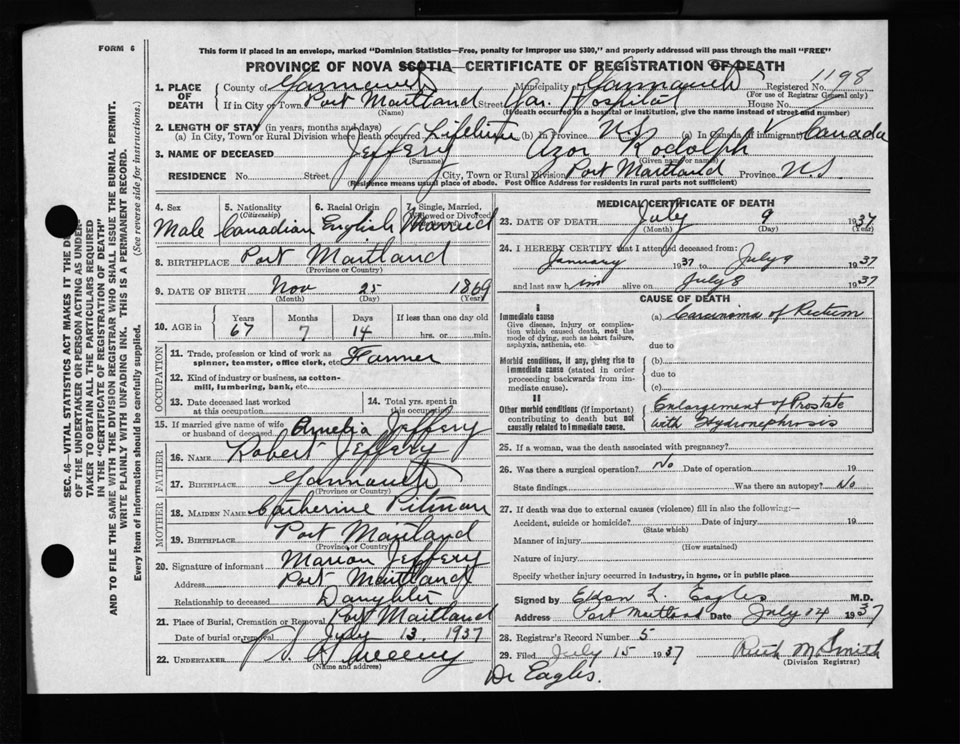 FORM 6
This form if placed in an envelope, marked "Dominion Statistics—Free, penalty for improper use $300," and properly addressed will pass through the mail "FREE"
PROVINCE OF NOVA SCOTIA—CERTIFICATE OF REGISTRATION OF DEATH
1198
1. PLACE OF DEATH
County of Yarmouth Municipality of Yarmouth Registered No.
(For use of Registrar General only)
If in City or Town, Port Maitland Street Yar. Hospital House No.
(Name) (If death occurred in a hospital or institution, give the name instead of street and number)
2. LENGTH OF STAY (in years, months and days)
(a) In City, Town or Rural Division where death occurred Lifetime (b) In Province N.S. (c) In Canada if immigrant Canada
3. NAME OF DECEASED Jeffery Azor Rodolph
(Surname) (Given name or names)
RESIDENCE No. Street City, Town or Rural Division Port Maitland Province N.S.
(Residence means usual place of abode. Post Office Address for residents in rural parts not sufficient)
4. Sex 5. Nationality (Citizenship) 6. Racial Origin 7. Single, Married, Widowed or Divorced
Male Canadian English Married
8. BIRTHPLACE Port Maitland
(Province or Country)
9. DATE OF BIRTH Nov 25 1869
(Month) (Day) (Year)
10. AGE in Years Months Days If less than one day old
67 7 14 hrs. or min.
OCCUPATION
11. Trade, profession or kind of work as spinner, teamster, office clerk, etc. Farmer
12. Kind of industry or business, as cotton-mill, lumbering, bank, etc.
13. Date deceased last worked at this occupation
14. Total yrs. spent in this occupation
15. If married give name of wife or husband of deceased Amelia Jeffery
FATHER
16. NAME Robert Jeffery
17. BIRTHPLACE Yarmouth
(Province or Country)
MOTHER
18. MAIDEN NAME Catherine Pitman
19. BIRTHPLACE Port Maitland
(Province or Country)
20. Signature of informant Marion Jeffery
Address Port Maitland
Relationship to deceased Daughter
21. Place of Burial, Cremation or Removal Port Maitland
Date of burial or removal July 13, 1937
22. UNDERTAKER Sweeny
(Name and address)
MEDICAL CERTIFICATE OF DEATH
23. DATE OF DEATH July 9 1937
(Month) (Day) (Year)
24. I HEREBY CERTIFY that I attended deceased from:
January 1937 to July 9 1937
and last saw him alive on July 8 1937
CAUSE OF DEATH
I
Immediate cause
Give disease, injury or complication which caused death, not the mode of dying, such as heart failure, asphyxia, asthenia, etc.
(a) Carcinoma of Rectum
due to
Morbid conditions, if any, giving rise to immediate cause (stated in order proceeding backwards from immediate cause).
(b)
due to
(c)
II
Other morbid conditions (if important) contributing to death but not causally related to immediate cause.
Enlargement of Prostate
with Hydronephrosis
25. If a woman, was the death associated with pregnancy?
26. Was there a surgical operation? No Date of operation 19
State findings Was there an autopsy? No
27. If death was due to external causes (violence) fill in also the following:—
Accident, suicide or homicide? Date of injury 19
(State which)
Manner of injury
(How sustained)
Nature of injury
Specify whether injury occurred in industry, in home, or in public place
Signed by Eldon L. Eagles M.D.
Address Port Maitland Date July 14 1937
28. Registrar's Record Number 5
29. Filed July 15 1937 Ruth M Smith
(Division Registrar)
Dr Eagles.
SEC. 46—VITAL STATISTICS ACT MAKES IT THE
OF THE UNDERTAKER OR PERSON ACTING AS UNDER-
TAKER TO OBTAIN ALL THE PARTICULARS REQUIRED
IN THE "CERTIFICATE OF REGISTRATION OF DEATH"
AND TO FILE THE SAME WITH THE DIVISION REGISTRAR WHO SHALL ISSUE THE BURIAL PERMIT.
WRITE PLAINLY WITH UNFADING INK. THIS IS A PERMANENT RECORD.
Every item of information should be carefully supplied. (See reverse side for instructions.)